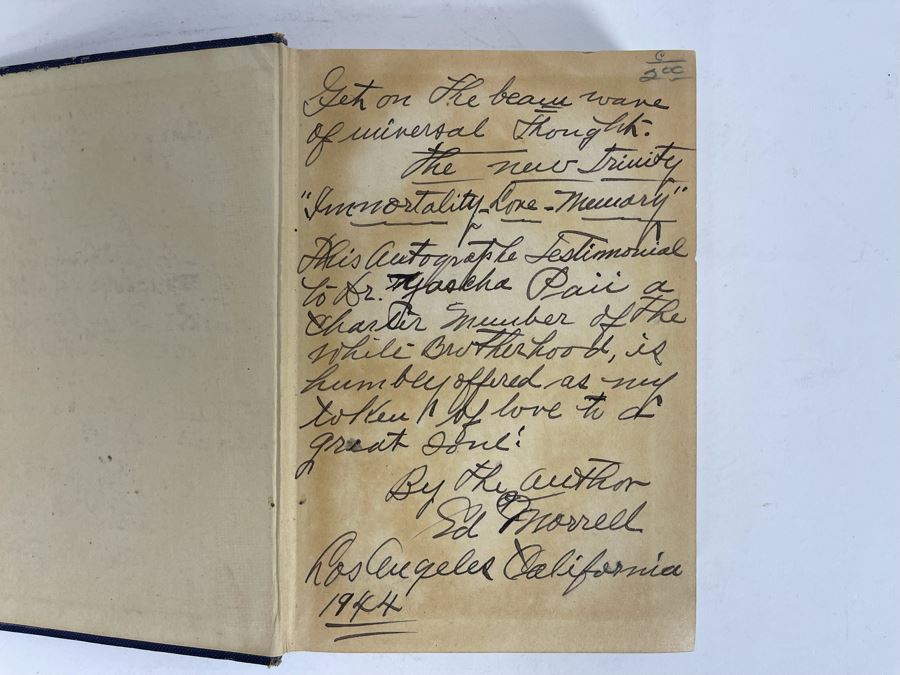 C
2 00
Get on the beam wave
of universal Thought.
The new Trinity
"Immortality-Love-Memory"
This Autographe Testimonial
to Dr. Mascha Paii a
Charter Member of the
White Brotherhood, is
humbly offered as my
token of love to a
great soul!
By the author
Ed Morrell
Los Angeles California
1944